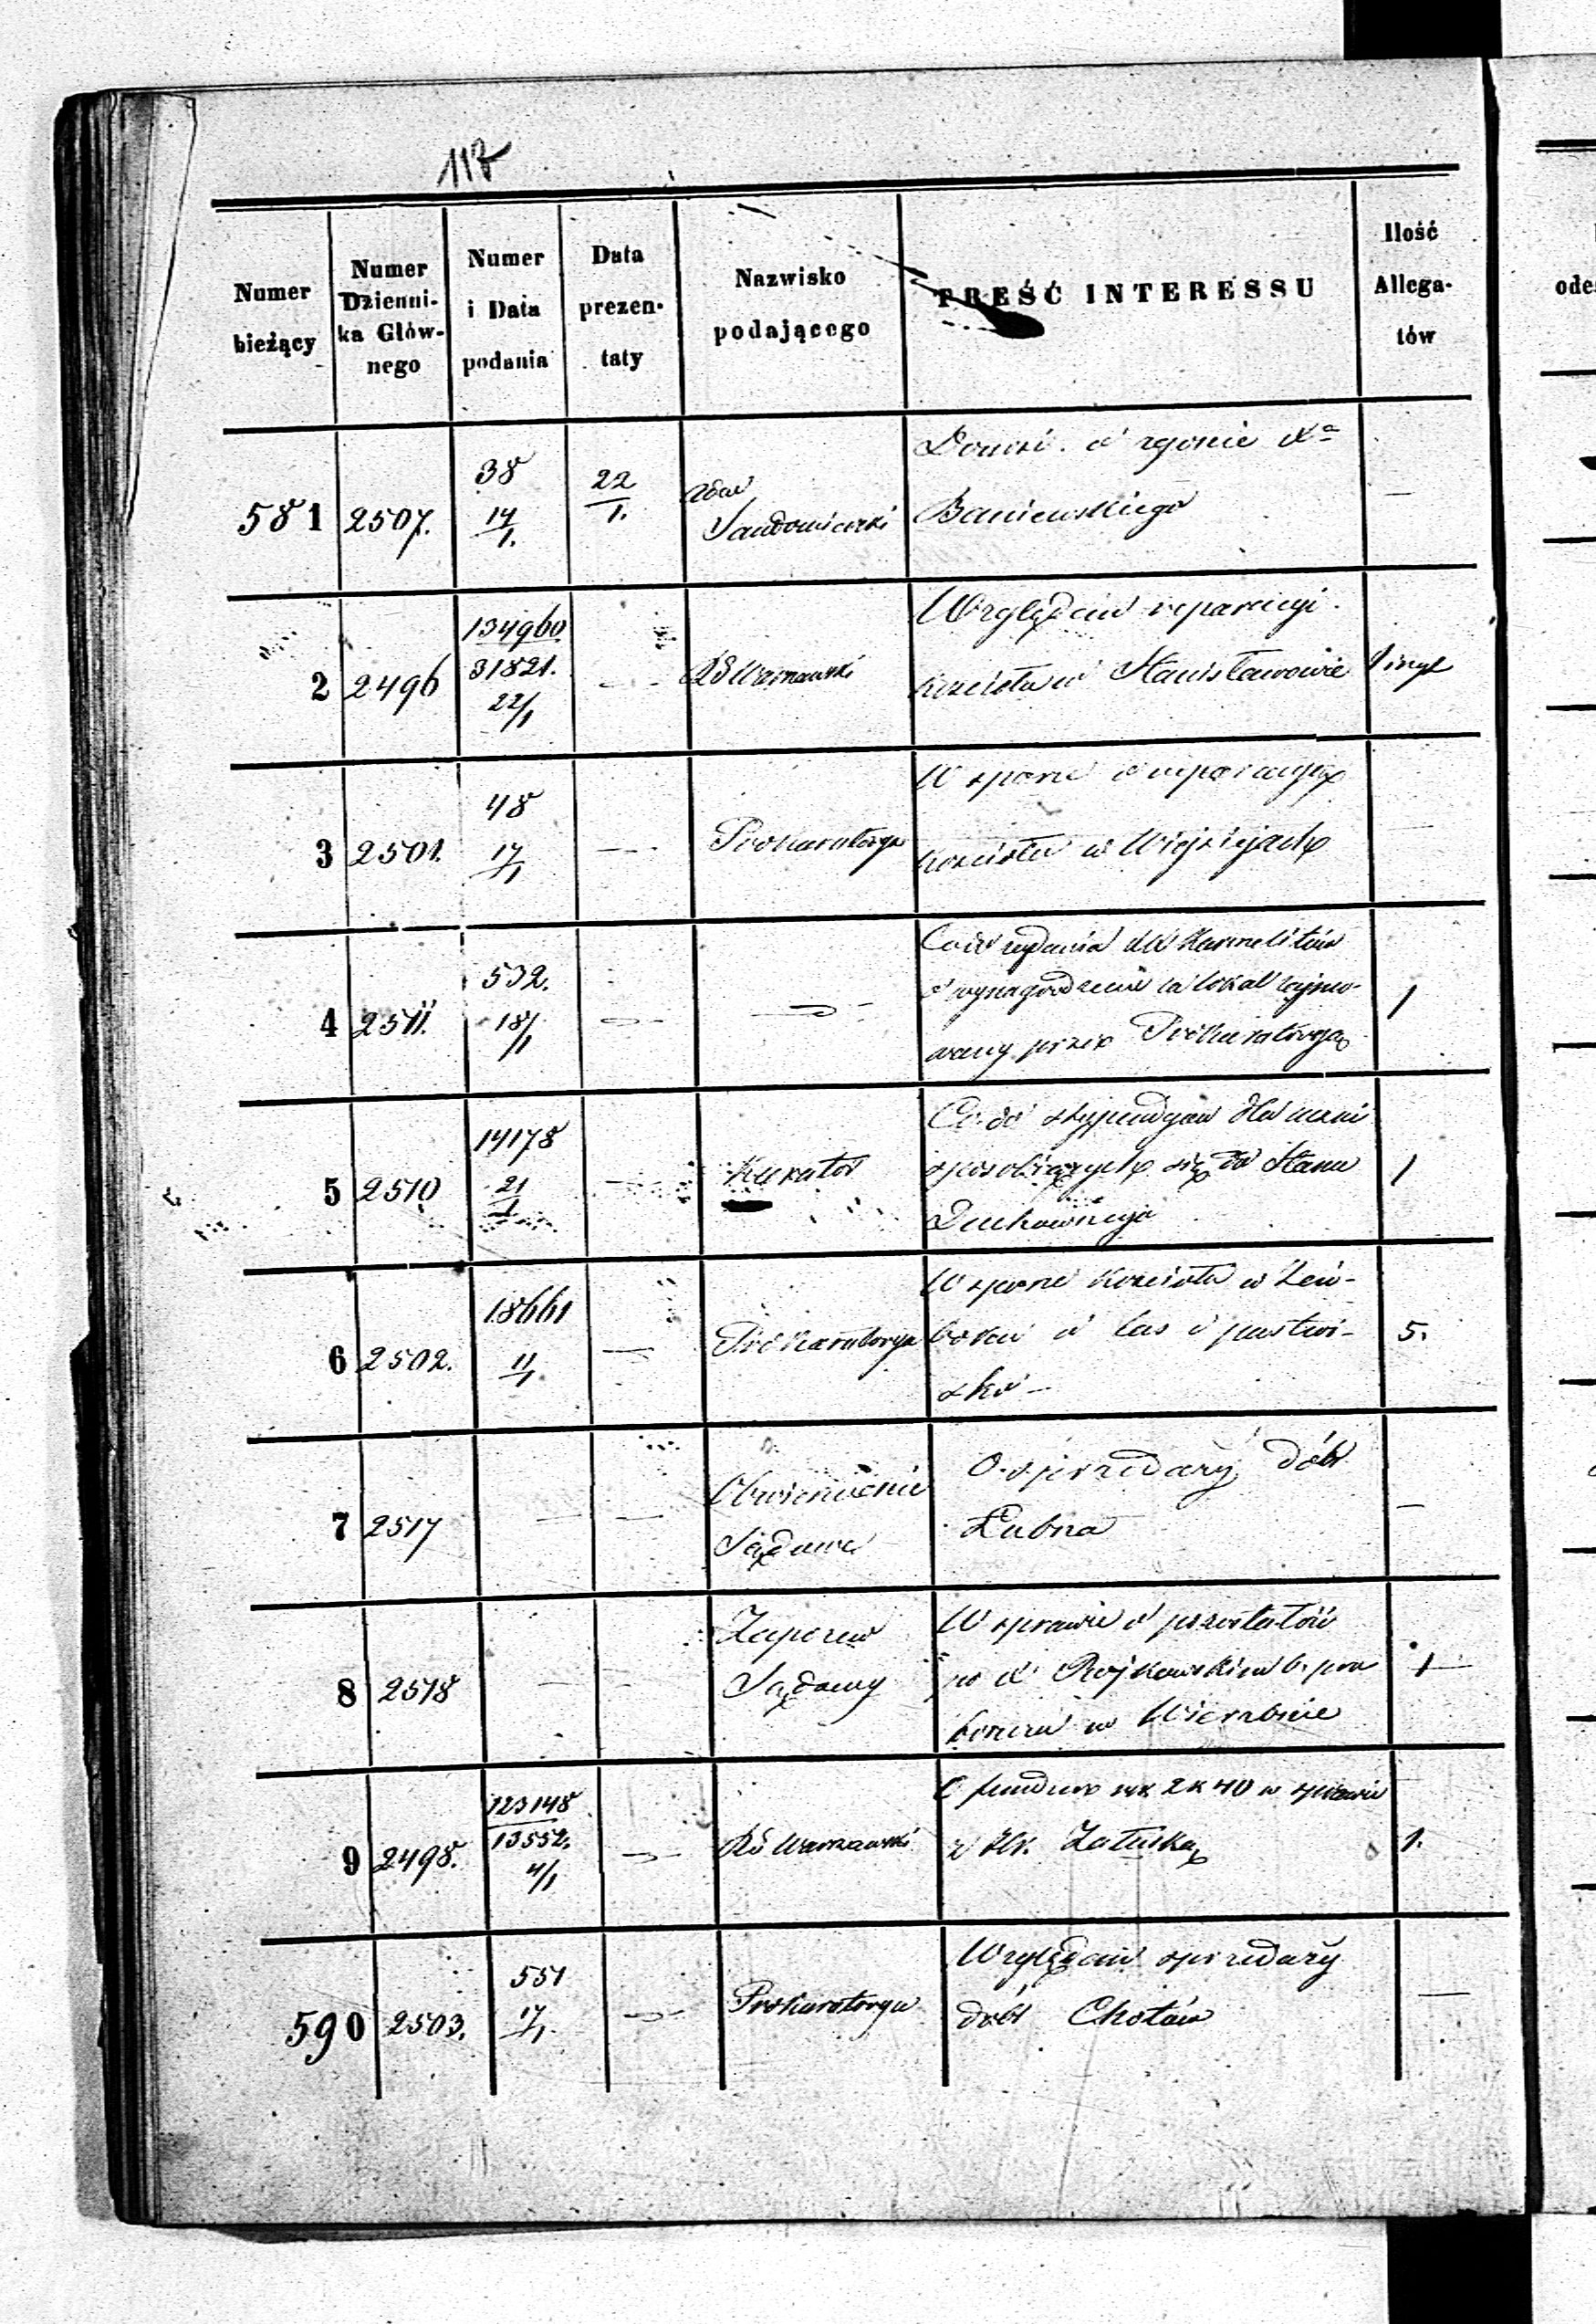 117
Numer bieżący
Numer Dzienni-
ka Głów-
nego
Numer
i Data
podania
Data
prezen-
taty
Nazwisko
podającego
TREŚĆ INTERESSU
Ilość
Allega-
tów
581 2507. 38 17/1. 22/1.
Sandomierski
o zgonie Xa
Baniewskiego
—
2 2496 134960
31821.
22/1
RG Warszawski
Względem reparacyi
kościoła w Stanisławowie
3 2501. 48
17/1
Prokuratorya
W sporze o reparacyę
kościoła w Wiejsiejach
4 2511. 532.
18/1
Co do żądania XX Karmelitów
o wynagrodzenie za lokal zajmo-
wany przez Prokuratoryę
1
5 2510 14178
21/1
Kurator
Co do stypendyów dla uczni
sposobiących się do Stanu
Duchownego
1
6 2502. 18661
11/1
Prokuratorya
W sporze kościoła w
o las i pastwi-
sko —
5.
7 2517
Obwieszczenie
Sądowe
O sprzedaży dóbr
Łubna
—
8 2518
Zapozew
Sądowy
W sprawie o pozostałość
po X Rojkowskim b. pro
boszczu w Wierzbnie
1
9 2498. 123148
13552.
4/1
RG Warszawski
O fundusz rsr 2 k 40 w sprawie
z Hr. Załuską
1.
590 2503. 551
17/1.
Prokuratorya
Względem sprzedaży
dóbr Chotów
—